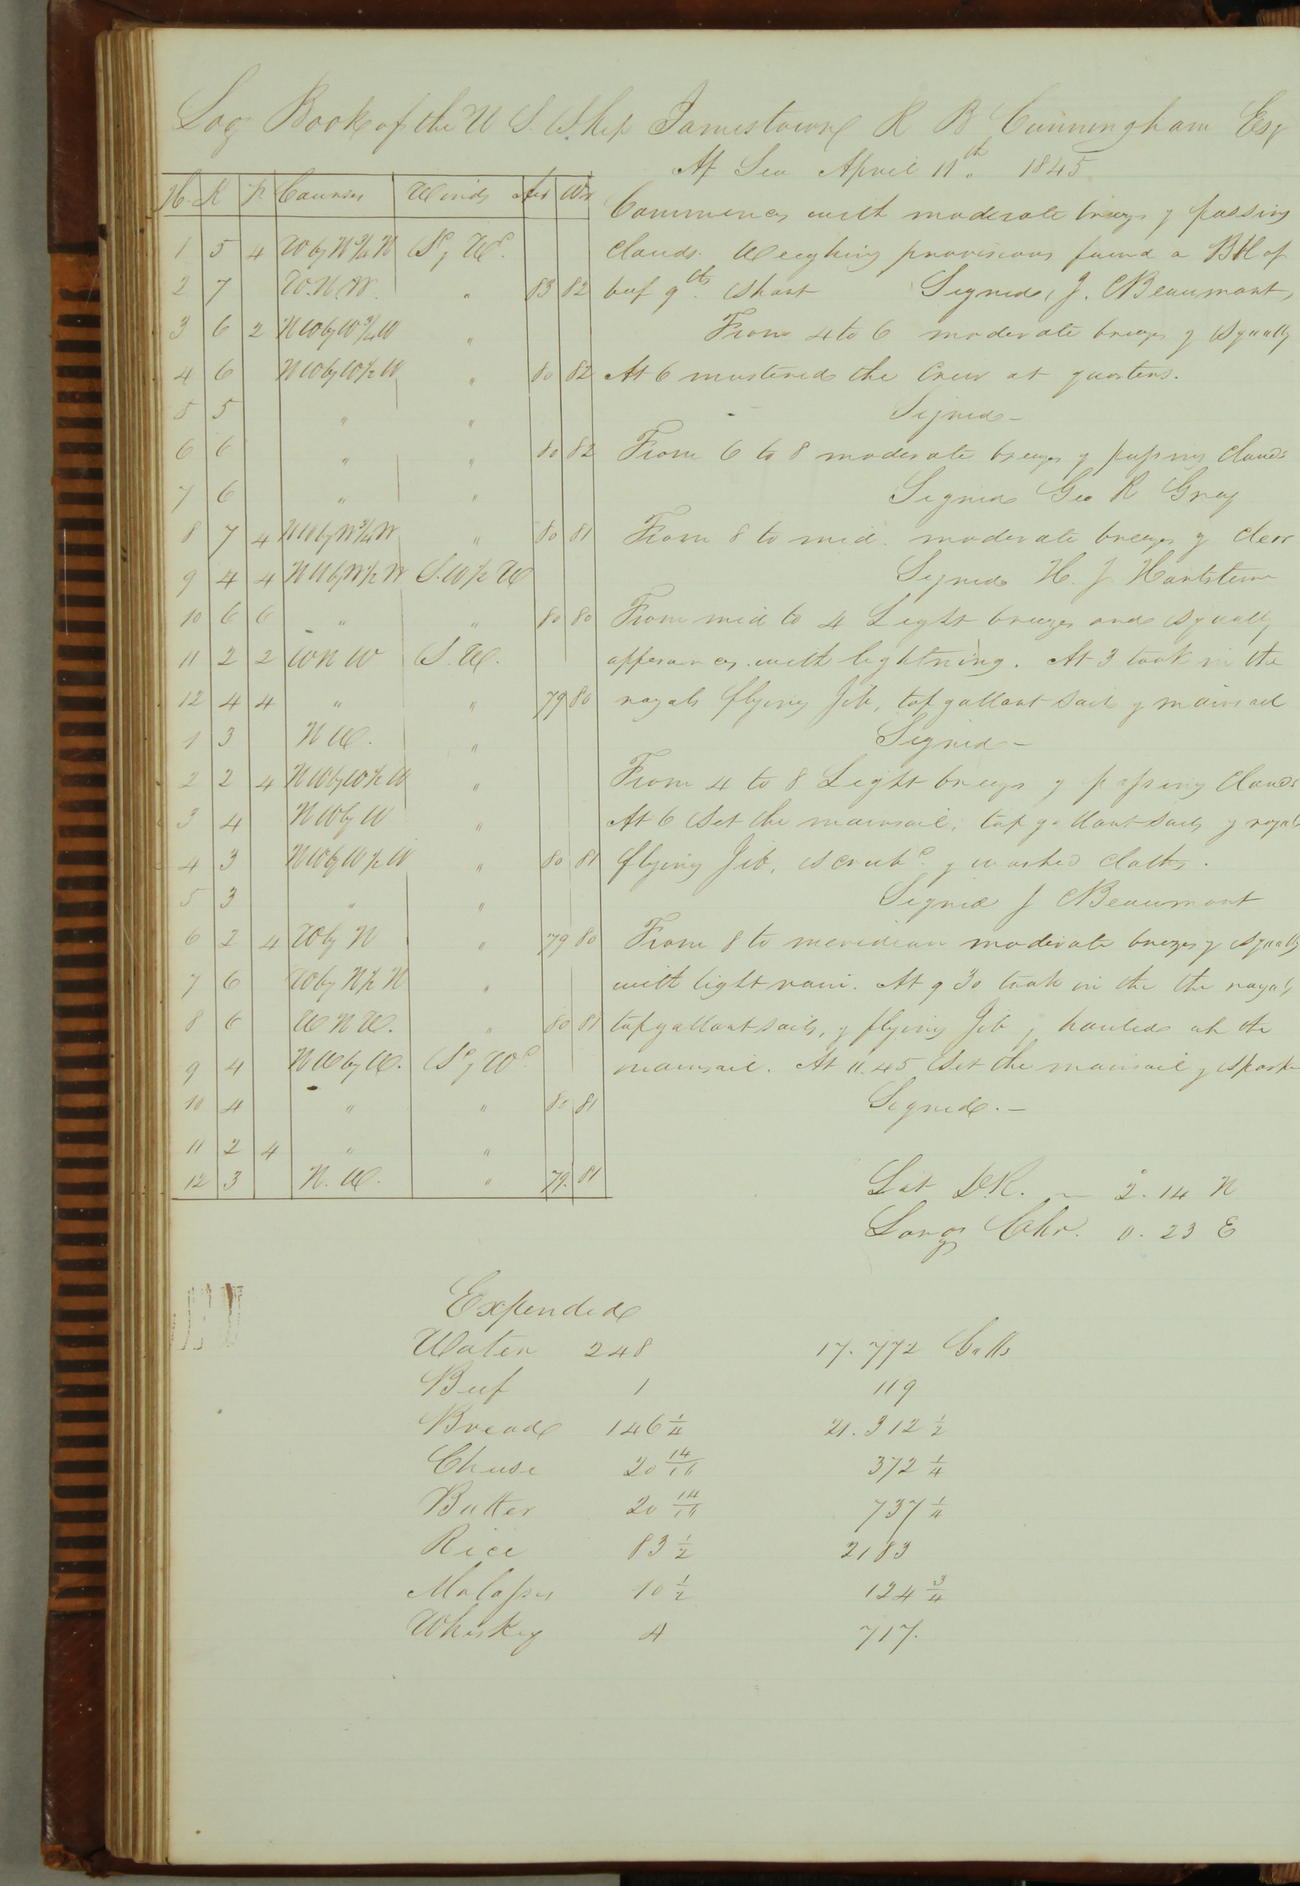 Log Book of the U S. Ship Jamestown R B Cunningham Esq
At Sea April 11th. 1845
H. K F. Courses Winds Air Wr
Commences with moderate breezes & passing
1 5 4 W by N ¾ N Sd & Wd.
clouds. Weeghing provisions found a Bbl of
2 7 W.N.W. " 83 82
beef 9 lbs. Short Signed, J. C Beaumont,
3 6 2 NW by W ¾ W "
From 4 to 6 moderate breezes & Squally
4 6 NW by W ½ W " 80 82
At 6 mustered the Crew at quarters.
5 5 " "
Signed –
6 6 " " 80 82
From 6 to 8 moderate breezes & passing Clouds
7 6 " "
Signed Geo R Gray
8 7 4 NW by W ¾ W " 80 81
From 8 to mid. moderate breezes & clear
9 4 4 NW by W ½ W S.W ½ W
Signed H. J. Hartstene
10 6 6 " " 80 80
From mid to 4 Light breezes and Squally
11 2 2 WNW S.W.
apperances with lightning. At 3 took in the
12 4 4 " " 79 80
royals flying Jib, topgallant Sails & mainsail
1 3 N W. "
Signed –
2 2 4 NW by W ½ W "
From 4 to 8 Light breezes & passing Clouds
3 4 NW by W "
At 6 Set the mainsail, topgallant Sails & royals
4 3 NW by W ½ W " 80 81
flying Jib, scrubd. & washed cloths.
5 3 " "
Signed J C Beaumont
6 2 4 W by N " 79 80
From 8 to meridian moderate breezes & Squally
7 6 W by N ½ N "
with light rain. At 9 30 took in the the royals
8 6 W N W. " 80 81
topgallant sails, & flying Jib & hauled up the
9 4 NW by W. Sd & Wd
mainsail. At 11.45 Set the mainsail & spanker
10 4 " " 80 81
Signed. –
11 2 4 " "
12 3 N. W. " 79. 81
Lat D.R. — 2°. 14 N
Long Chr. 0. 23 E
Expended
Water 248 17.772 Galls
Beef 1 119
Bread 146 ¼ 21.312 ½
Cheese 20 14/16 372 ¼
Butter 20 14/16 737 ¼
Rice 83 ½ 2183
Molasses 10 ½ 124 ¾
Whiskey 4 717.